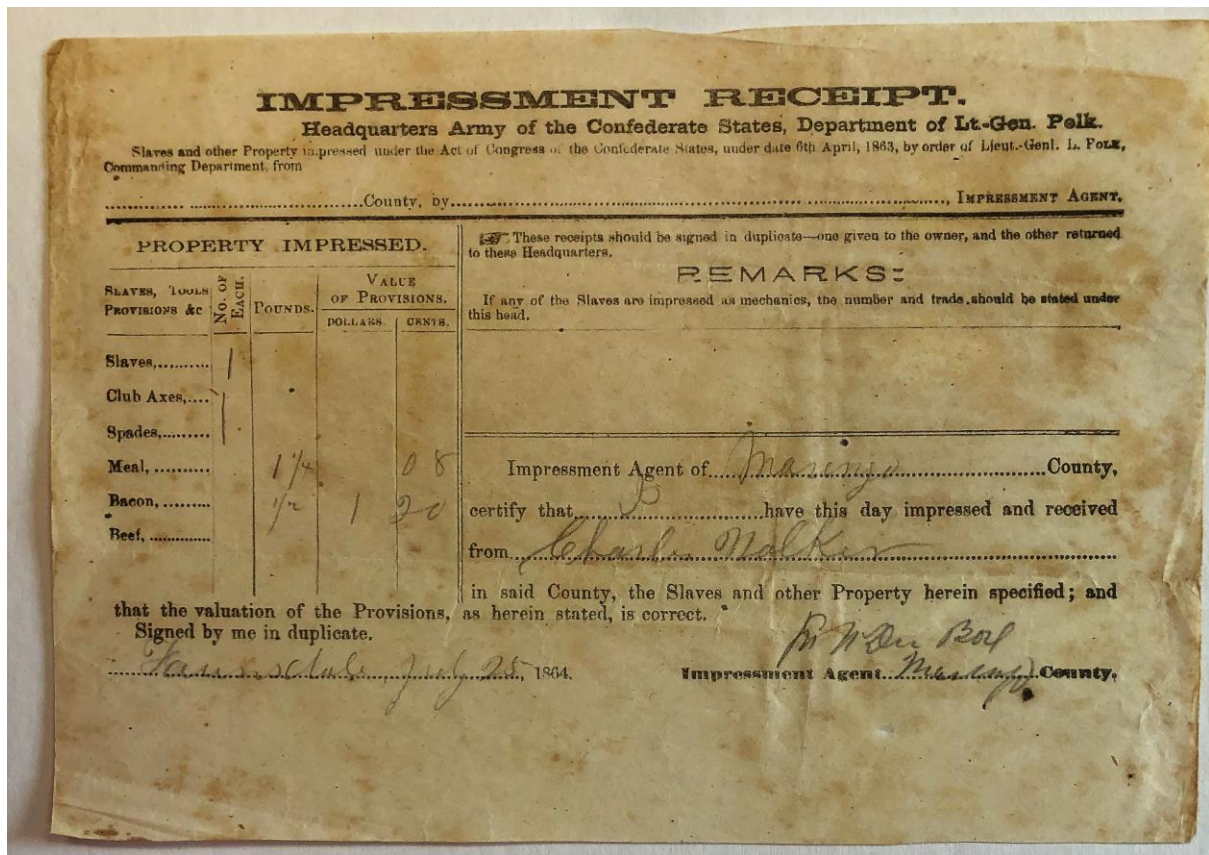 IMPRESSMENT RECEIPT.
Headquarters Army of the Confederate States, Department of Lt.-Gen. Polk.
Slaves and other Property impressed under the Act of Congress of the Confederate States, under date 6th April, 1863, by order of Lieut.-Genl. L. POLK,
Commanding Department, from
County, by IMPRESSMENT AGENT.
PROPERTY IMPRESSED.
SLAVES, TOOLS PROVISIONS &c
No. OF EACH.
POUNDS.
VALUE OF PROVISIONS.
DOLLARS. CENTS.
Slaves, 1
Club Axes, 1
Spades,
Meal, 1 1/4 08
Bacon, 1/2 1 20
Beef,
☞ These receipts should be signed in duplicate—one given to the owner, and the other returned
to these Headquarters.
REMARKS:
If any of the Slaves are impressed as mechanics, the number and trade should be stated under
this head.
Impressment Agent of Marengo County,
certify that I have this day impressed and received
from Charles Walker
in said County, the Slaves and other Property herein specified; and
that the valuation of the Provisions, as herein stated, is correct.
Signed by me in duplicate.
Faunsdale July 25, 1864.
Impressment Agent Marengo County.